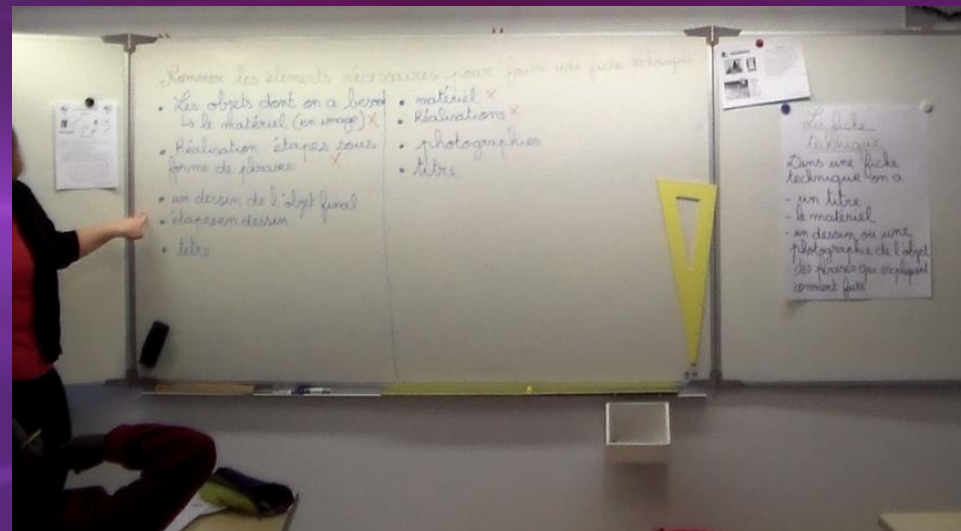 Nommer les éléments nécessaires pour avoir une fiche technique
• Les objets dont on a besoin
↳ le matériel (en image) x
• Réalisation étapes sous
forme de phrases x
• un dessin de l'objet final
• étapes en dessin
• titre
• matériel x
• Réalisations x
• photographies
• titre
La fiche
technique
Dans une fiche
technique on a
- un titre
- le matériel
- un dessin ou une
photographie de l'objet
- des phrases qui expliquent
comment faire